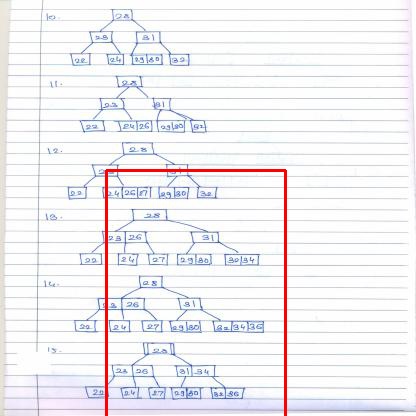 10.
28
23 31
22 24 29 30 32
11.
28
23 31
22 24 26 29 30 32
12.
28
23 31
22 24 26 27 29 30 32
13.
28
23 26 31
22 24 27 29 30 32 34
14.
28
23 26 31
22 24 27 29 30 32 34 36
15.
28
23 26 31 34
22 24 27 29 30 32 36